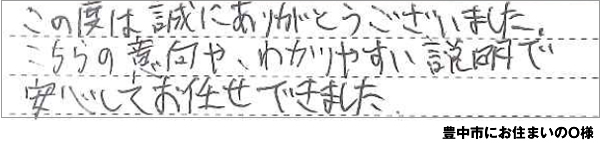 この度は誠にありがとうございました。
こちらの意向や、わかりやすい説明で
安心してお任せできました.
豊中市にお住まいのO様